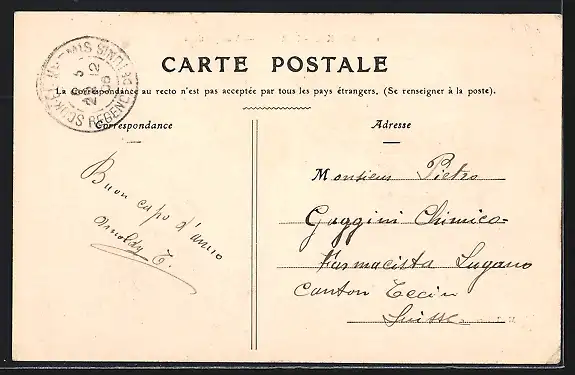 CARTE POSTALE
La Correspondance au recto n'est pas acceptée par tous les pays étrangers. (Se renseigner à la poste).
Correspondance
Buon capo d'anno
Arnoldo T.
Adresse
Monsieur Pietro
Gaggini Chimico-
Farmacista Lugano
Canton Tecin
Suisse
TUNIS REGENCE